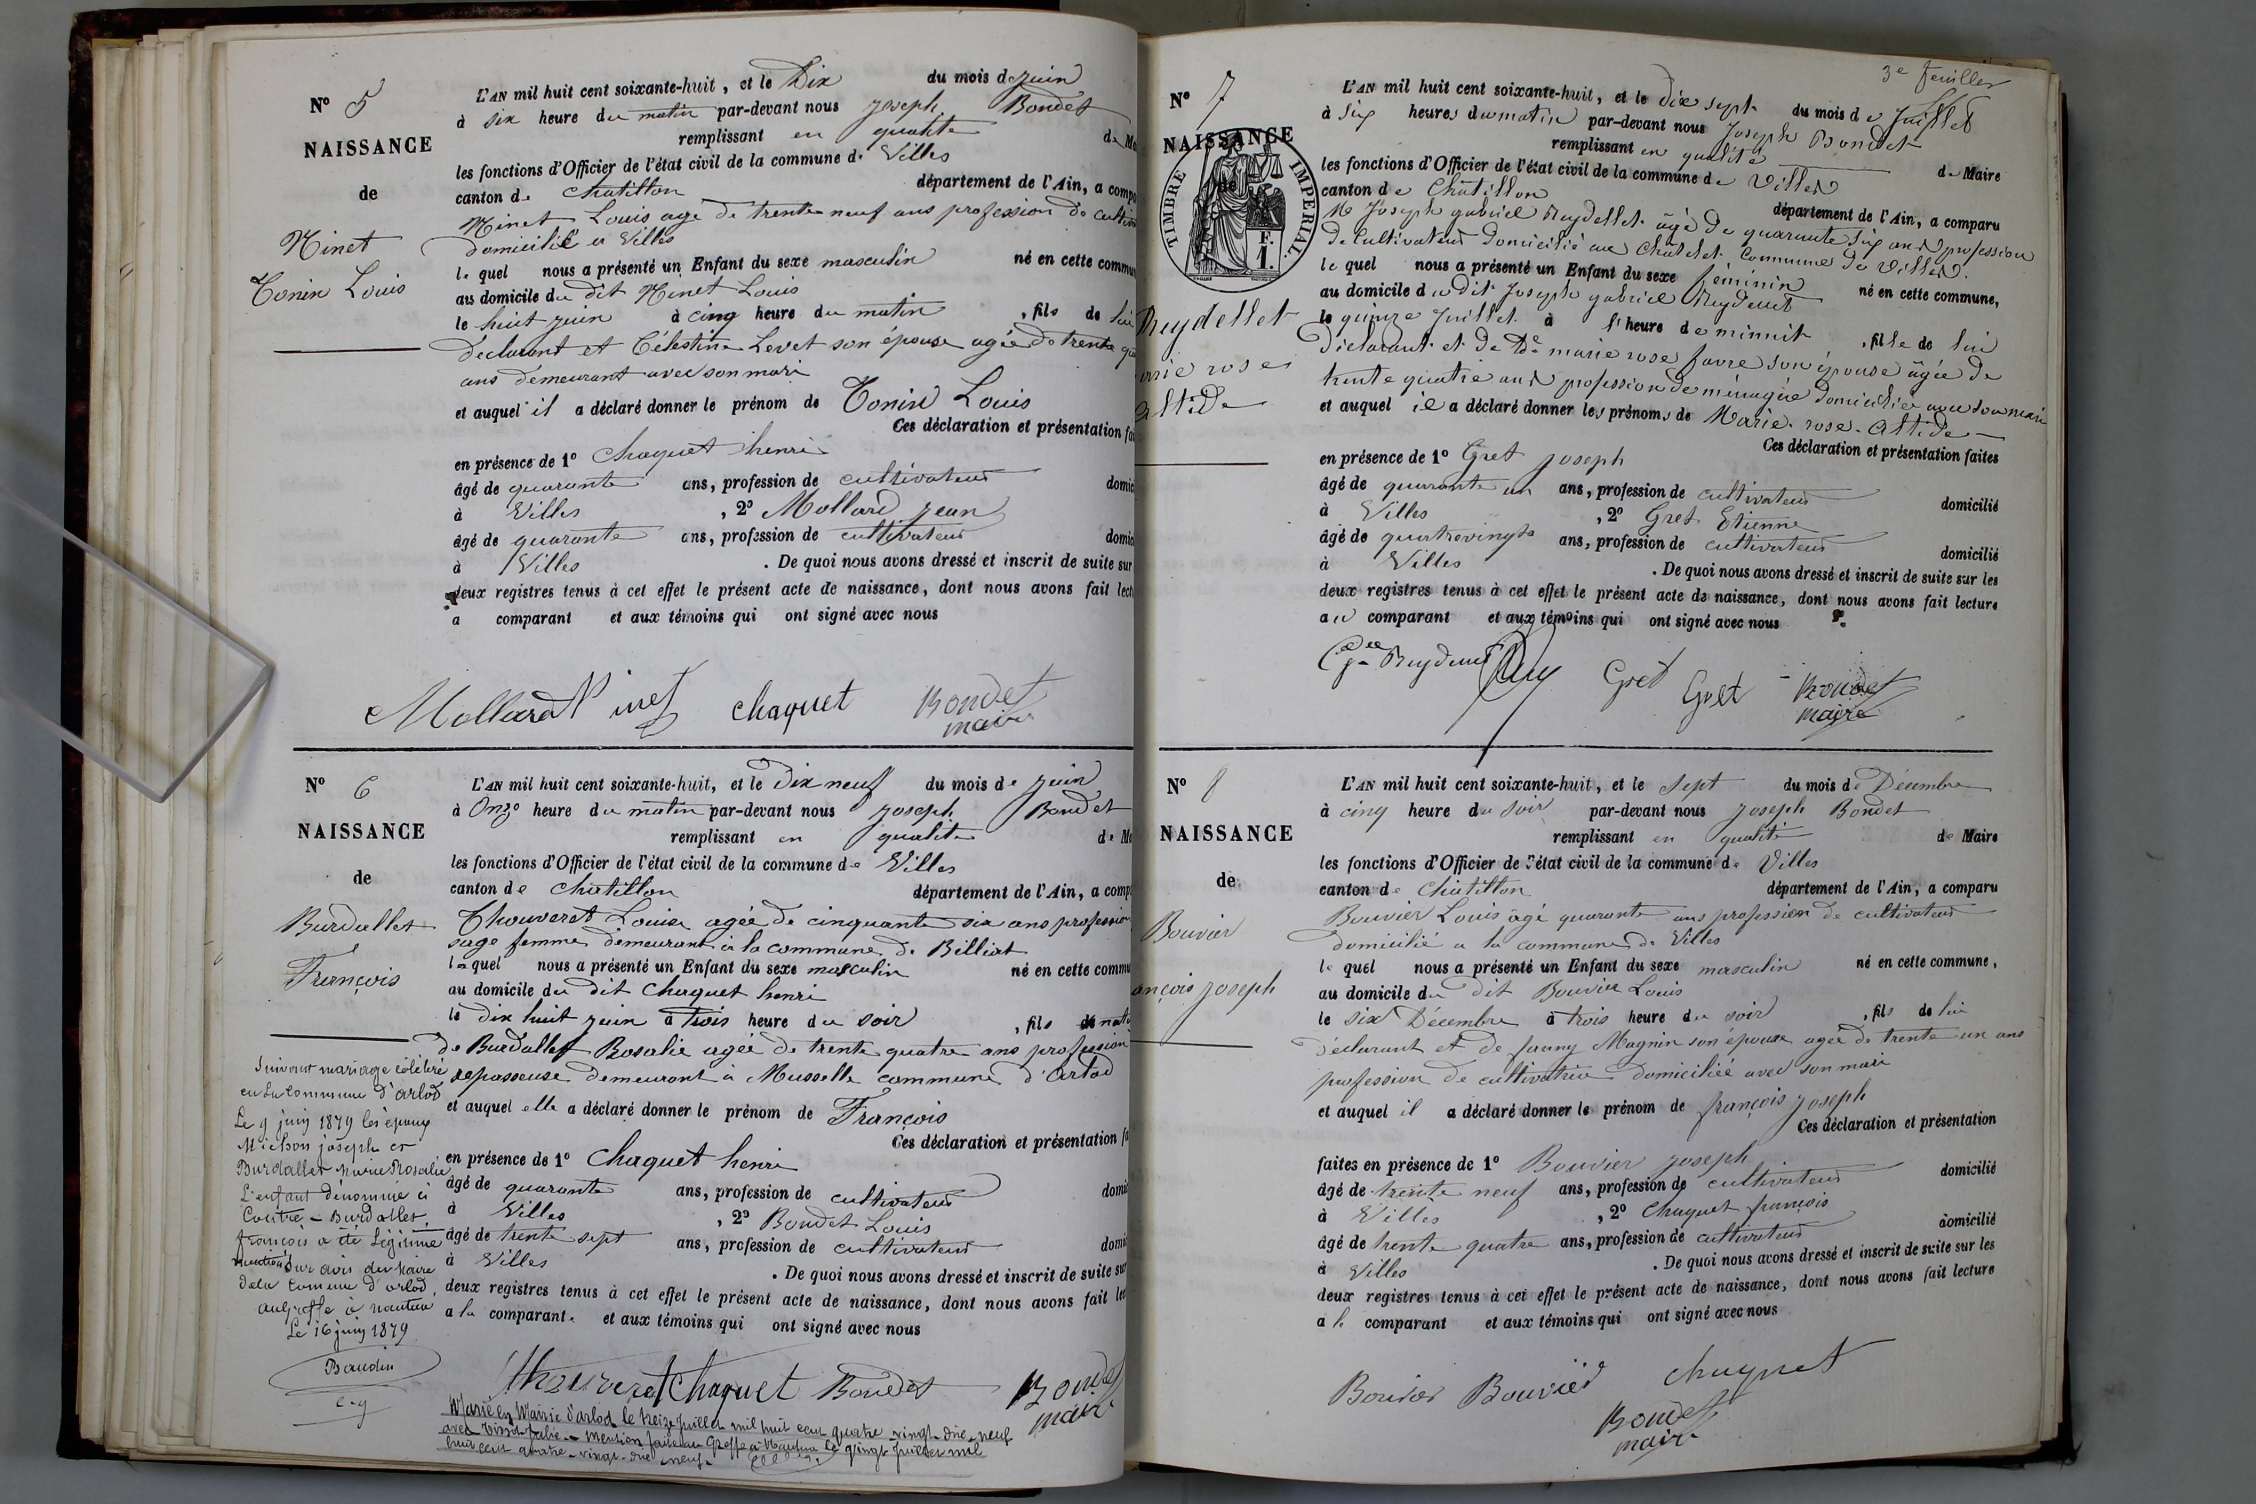 N° 5
NAISSANCE
de
Ninet
Tonin Louis
L'AN mil huit cent soixante-huit, et le Dix du mois de juin
à six heure du matin par-devant nous joseph Bondet
remplissant en qualité de
les fonctions d'Officier de l'état civil de la commune de Villes
canton de Chatillon département de l'Ain, a
Ninet Louis agé de trente neuf ans profession de
domicilié a Villes
le quel nous a présenté un Enfant du sexe masculin né en cette
au domicile du dit Ninet Louis
le huit juin à cinq heure du matin , fils de lui
déclarant et Célestine Levet son épouse agée de trente
ans demeurant avec son mari
et auquel il a déclaré donner le prénom de Tonin Louis
Ces déclaration et présentation
en présence de 1° Chaquet henri
âgé de quarante ans, profession de cultivateur
à Villes , 2° Mollard jean
âgé de quarante ans, profession de cultivateur
à Villes . De quoi nous avons dressé et inscrit de suite sur
deux registres tenus à cet effet le présent acte de naissance, dont nous avons fait
a comparant et aux témoins qui ont signé avec nous
Mollard Ninet Chaquet Bondet
maire
N° 6
NAISSANCE
de
Burdallet
François
L'AN mil huit cent soixante-huit, et le Dix neuf du mois de juin
à Onze heure du matin par-devant nous joseph Bondet
remplissant en qualité de
les fonctions d'Officier de l'état civil de la commune de Villes
canton de Chatillon département de l'Ain, a
Thouveret Louise agée de cinquante six ans profession
sage femme demeurant à la commune de Billiat
laquel nous a présenté un Enfant du sexe masculin né en cette
au domicile du dit Chaquet henri
le dix huit juin à trois heure du soir , fils
de Burdallet Rosalie agée de trente quatre ans profession
repasseuse demeurant à Musselle commune d'Arlod
et auquel elle a déclaré donner le prénom de François
Ces déclaration et présentation
en présence de 1° Chaquet henri
âgé de quarante ans, profession de cultivateur
à Villes , 2° Bondet Louis
âgé de trente sept ans, profession de cultivateur
à Villes . De quoi nous avons dressé et inscrit de suite sur
deux registres tenus à cet effet le présent acte de naissance, dont nous avons fait
a la comparante et aux témoins qui ont signé avec nous
Thouveret Chaquet Bondet Bondet
maire
Suivant mariage célébré
en la commune d'arlod
Le 9 juin 1879 les époux
Michon joseph et
Burdallet Marie Rosalie
L'enfant dénommé ci
Contre - Burdallet
françois a été légitimé
mention sur avis du Maire
de la Comune d'arlod,
au greffe à nantua
Le 16 juin 1879
Baudin
c.g
Marié en Mairie d'arlod le treize juillet mil huit cent quatre vingt-dix-neuf
avec Julie - Mention faite au Greffe à Nantua le vingt juillet mil
huit cent quatre-vingt-dix neuf.
3e feuillet
N° 7
NAISSANCE
de
TIMBRE IMPERIAL.
F.
1.
Reydellet
rose
L'AN mil huit cent soixante-huit, et le dix sept du mois de juillet
à Six heures du matin par-devant nous Joseph Bondet
remplissant en qualité de Maire
les fonctions d'Officier de l'état civil de la commune de Villes
canton de Chatillon département de l'Ain, a comparu
M Joseph gabriel Reydellet âgé de quarante six ans profession
de Cultivateur domicilié au Châtelet Commune de Villes.
le quel nous a présenté un Enfant du sexe féminin né en cette commune,
au domicile du dit Joseph gabriel Reydellet
le quinze Juillet à l'heure de minuit , fille de lui
Déclarant et de De marie rose favre son épouse âgée de
trente quatre ans profession de ménagère domiciliée avec son mari
et auquel il a déclaré donner les prénoms de Marie rose
Ces déclaration et présentation faites
en présence de 1° Gret joseph
âgé de quarante un ans, profession de cultivateur domicilié
à Villes , 2° Gret Etienne
âgé de quatrevingts ans, profession de cultivateur domicilié
à Villes . De quoi nous avons dressé et inscrit de suite sur les
deux registres tenus à cet effet le présent acte de naissance, dont nous avons fait lecture
au comparant et aux témoins qui ont signé avec nous
Gret Gret Bondet
maire
N° 8
NAISSANCE
de
Bouvier
joseph
L'AN mil huit cent soixante-huit, et le sept du mois de Décembre
à cinq heure du soir par-devant nous joseph Bondet
remplissant en qualité de Maire
les fonctions d'Officier de l'état civil de la commune de Villes
canton de Chatillon département de l'Ain, a comparu
Bouvier Louis âgé quarante ans profession de cultivateur
domicilié a la commune de Villes
le quel nous a présenté un Enfant du sexe masculin né en cette commune,
au domicile du dit Bouvier Louis
le six Décembre à trois heure du soir , fils de lui
déclarant et de fanny Magnin son épouse agée de trente un ans
profession de cultivatrice domiciliée avec son mari
et auquel il a déclaré donner le prénom de françois joseph
Ces déclaration et présentation
faites en présence de 1° Bouvier joseph
âgé de trente neuf ans, profession de cultivateur domicilié
à Villes , 2° Chaquet françois
âgé de trente quatre ans, profession de cultivateur domicilié
à Villes . De quoi nous avons dressé et inscrit de suite sur les
deux registres tenus à cet effet le présent acte de naissance, dont nous avons fait lecture
a le comparant et aux témoins qui ont signé avec nous
Bouvier Bouvier Chaquet
Bondet
maire